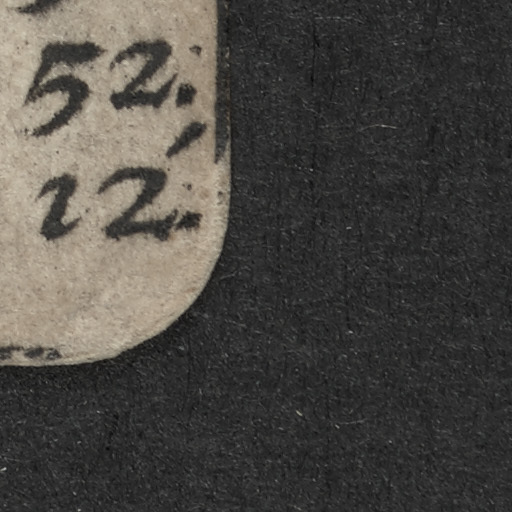 52.
12.